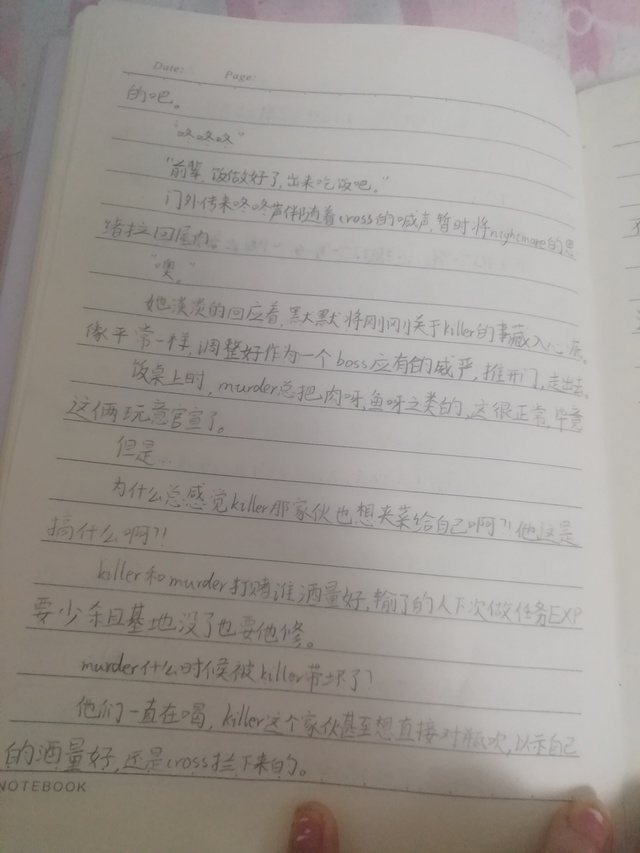 Date: Page:
的吧。
"咚咚咚"
"前辈,饭做好了,出来吃饭吧。"
门外传来咚咚声伴随着cross的喊声,暂时将nightmare的思
绪拉回屋内。
"噢。"
她淡淡的回应着,默默将刚刚关于killer的事藏入心底。
像平常一样,调整好作为一个boss应有的威严,推开门,走出去。
饭桌上时,murder总把肉呀,鱼呀之类的,这很正常,毕竟
这俩玩意官宣了。
但是..
为什么总感觉killer那家伙也想夹菜给自己啊?!他这是
搞什么啊?!
killer和murder打赌谁酒量好,输了的人下次做任务EXP
要少杀且基地没了也要他修。
murder什么时候被killer带坏了?
他们一直在喝,killer这个家伙甚至想直接对瓶吹,以示自己
的酒量好,还是cross拦下来的。
NOTEBOOK